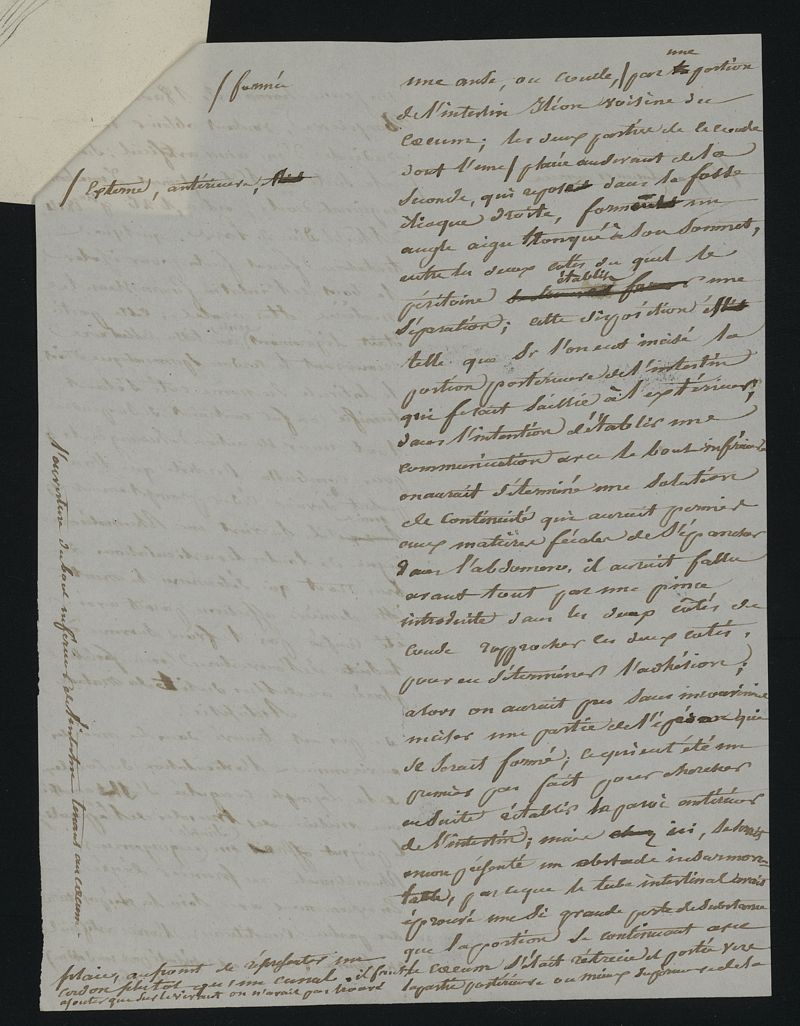 / formée
/ externe, antérieure,
une anse, ou coude, / par une portion
de l'intestin Iléon voisine du
Cœcum; les deux parties de ce coude
dont l'une / placée audevant de la
seconde, qui repose dans la fosse
iliaque droite, forment un
angle aigu tronqué à son sommet,
entre les deux cotés du quel le
péritoine établir une
séparation; cette disposition
telle que si l'on eut incisé la
portion postérieure de l'intestin
qui fesait saillie à l'extérieur,
dans l'intention d'établir une
communication avec le bout inférieur
on aurait déterminé une solution
de continuité qui aurait permis
aux matières fécales de s'épancher
dans l'abdomen, il aurait fallu
avant tout par une pince
introduite dans les deux côtés du
coude rapprocher les deux cotés,
pour en déterminer l'adhésion;
alors on aurait pu sans inconvénient
inciser une partie de l' qui
se serait formé, ce qui eut été un
premier pas fait pour chercher
ensuite établir la paroi antérieure
de l'intestin; mais ici, se serait
encore présenté un obstacle insurmon-
table, parceque le tube intestinal avait
éprouvé une si grande perte de substance
que la portion se continuant avec
le cœcum s'était rétrécie et portée vers
la partie postérieure ou mieux inférieure de la
plaie, au point de représenter un
cordon plutot qu'un canal. il faut
ajouter que sur le vivant on n'avait pas trouvé
l'ouverture du bout inférieur de l'intestin tenant au cœcum.